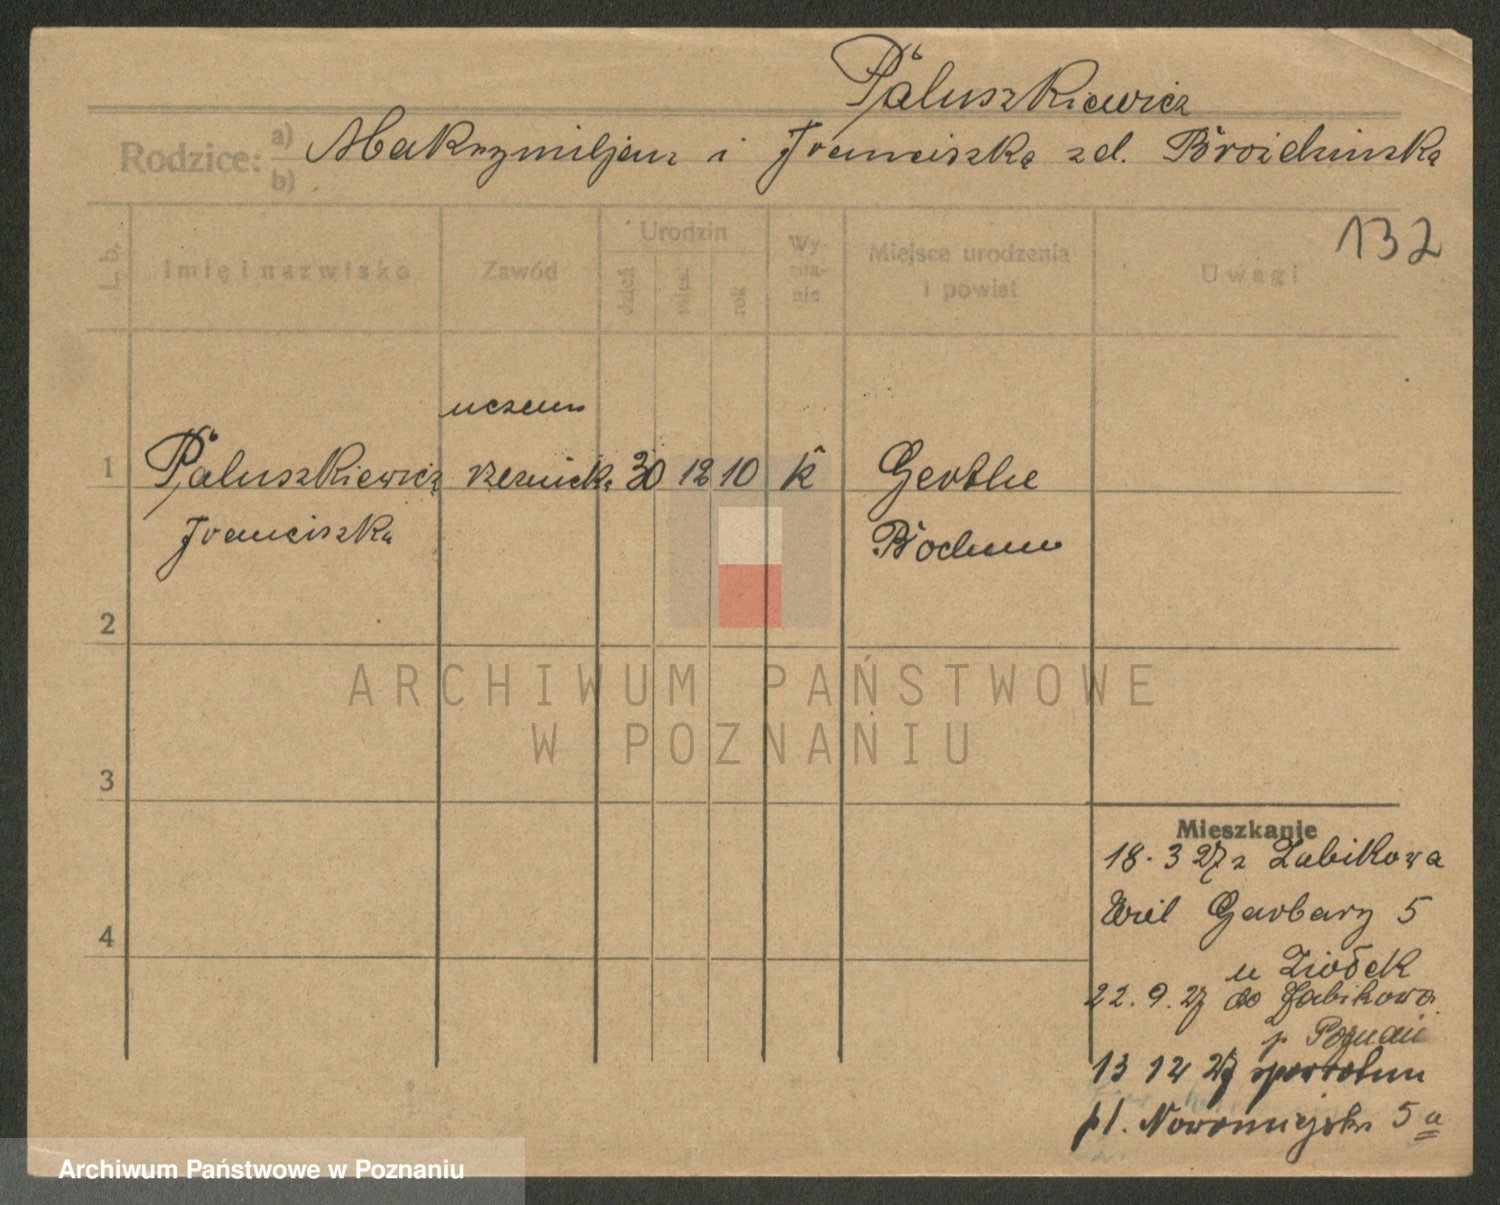 Paluszkiewicz
Rodzice: a) b) Maksymiljan i Franciszka zd. Broździnska
132
L. b.
Imię i nazwisko
Zawód
Urodzin
dzień
mies.
rok
Wy-
zna-
nie
Miejsce urodzenia
i powiat
Uwagi
uczen
1 Paluszkiewicz rzeznick. 30 12 10 k Gerthe
Franciszka Bochum
2
ARCHIWUM PAŃSTWOWE
W POZNANIU
3
Mieszkanie
18. 3 27 z Zabikowa
Wiel Garbary 5
4
u Ziółek
22. 9. 27 do Żabikowa
p. Poznań
13 12 27 spowrotem
pl. Nowomiejski 5 a
Archiwum Państwowe w Poznaniu